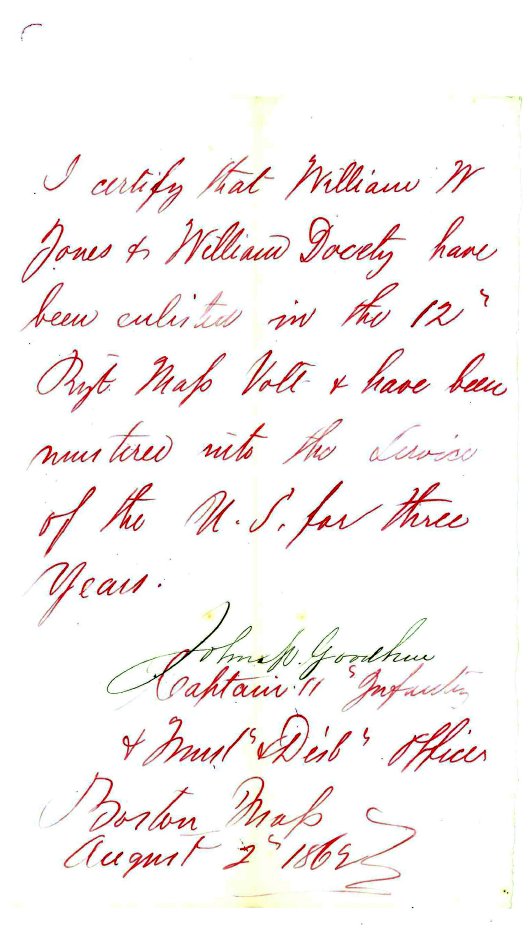 I certify that William W
Jones & William Docety have
been enlisted in the 12"
Rgt. Mass Volt & have been
mustered into the Servise
of the U. S. for three
Years.
Goodhue
Captain 11" Infantry
& Must" & Disb" Officer
Boston Mass
August 2" 1862